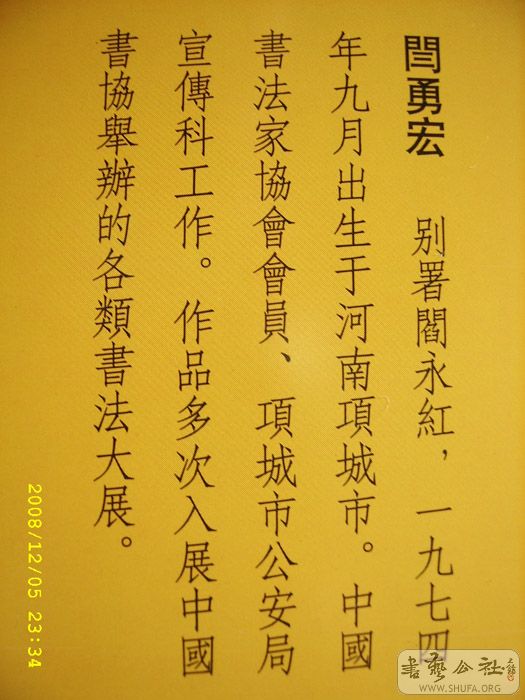 閆勇宏 别署閻永紅，一九七四
年九月出生于河南項城市。中國
書法家協會會員、項城市公安局
宣傳科工作。作品多次入展中國
書協舉辦的各類書法大展。
2008/12/05 23:34
書藝公社
WWW.SHUFA.ORG